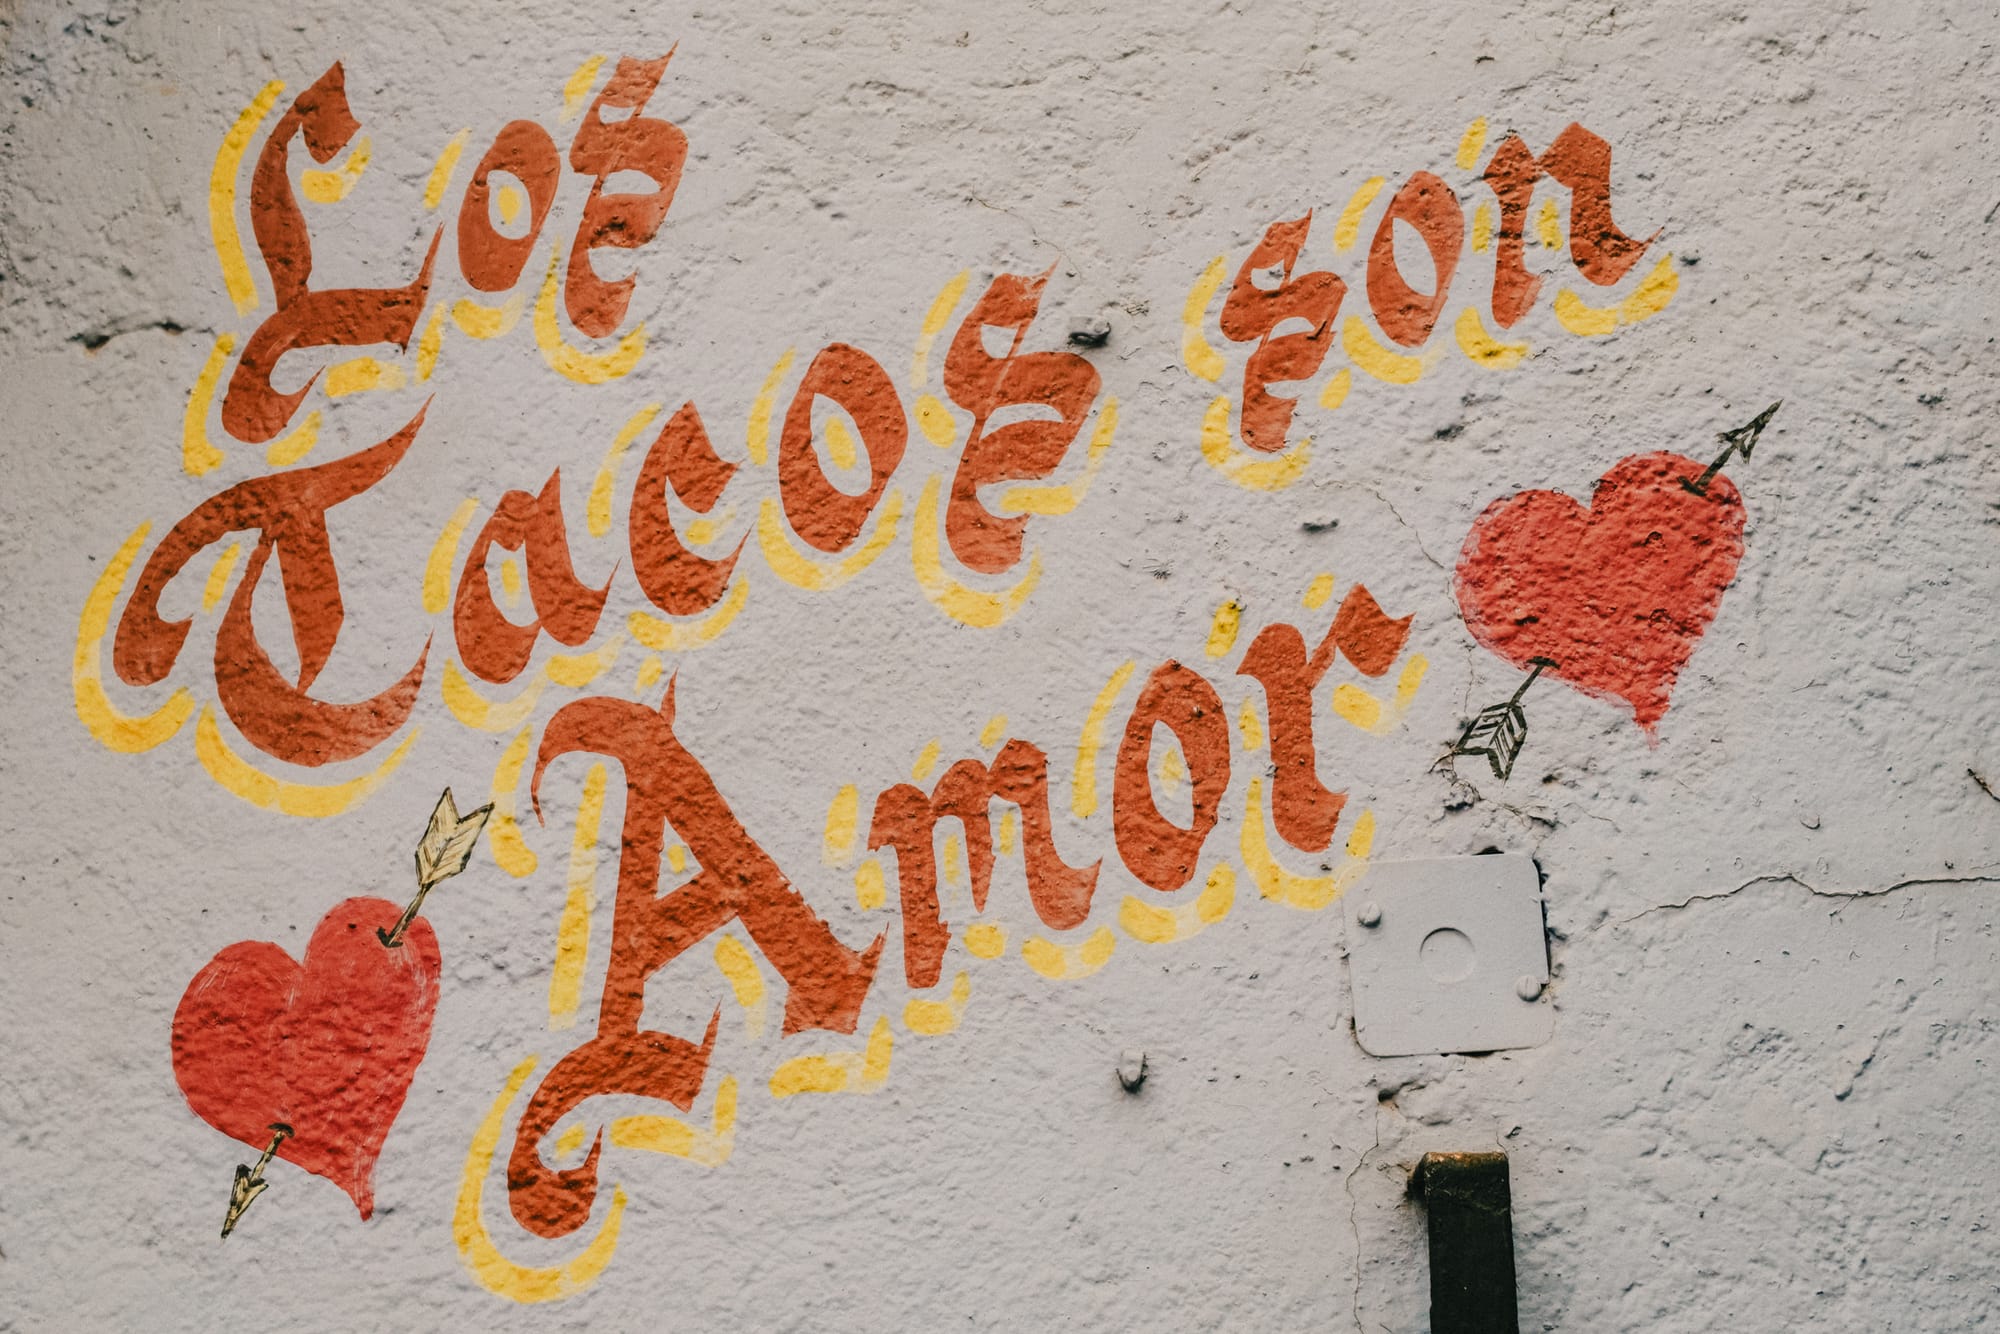 Los
Tacos son
Amor